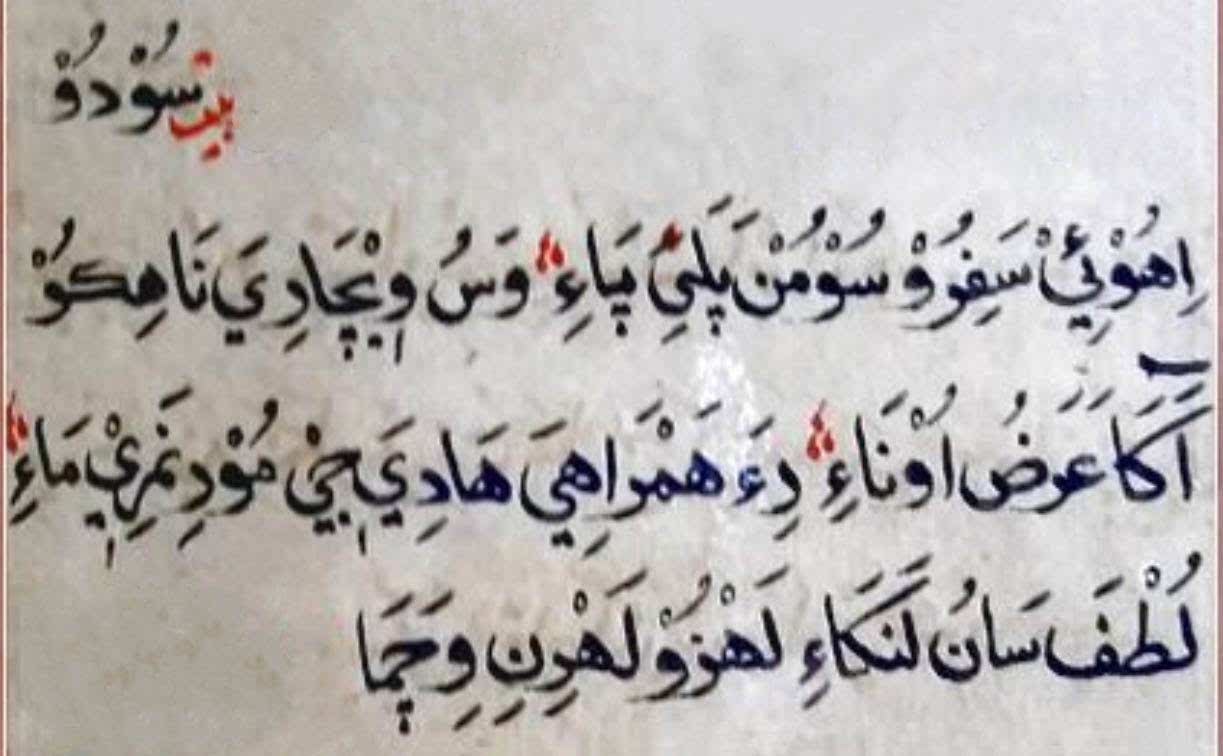 بيت سُوْدُوْ
اِهُوْئِيْ سَفِرُوْ سُوْمُنْ پَلَئِ پَاءِ ؞ وَسُ وِيْچَارِيَ نَاهِڪُوْ
آڪَا عَرَضُ اُوْنَاءِ ؞ دِءَ هَمْرَاهِيَ هَادِيَ جِيْ مُوْدِ نَمِرِيْ مَاءِ ؞
لُطْفَ سَانُ لَنکَاءِ لَهْرُوْ لَهْرِنِ وِچَمَا